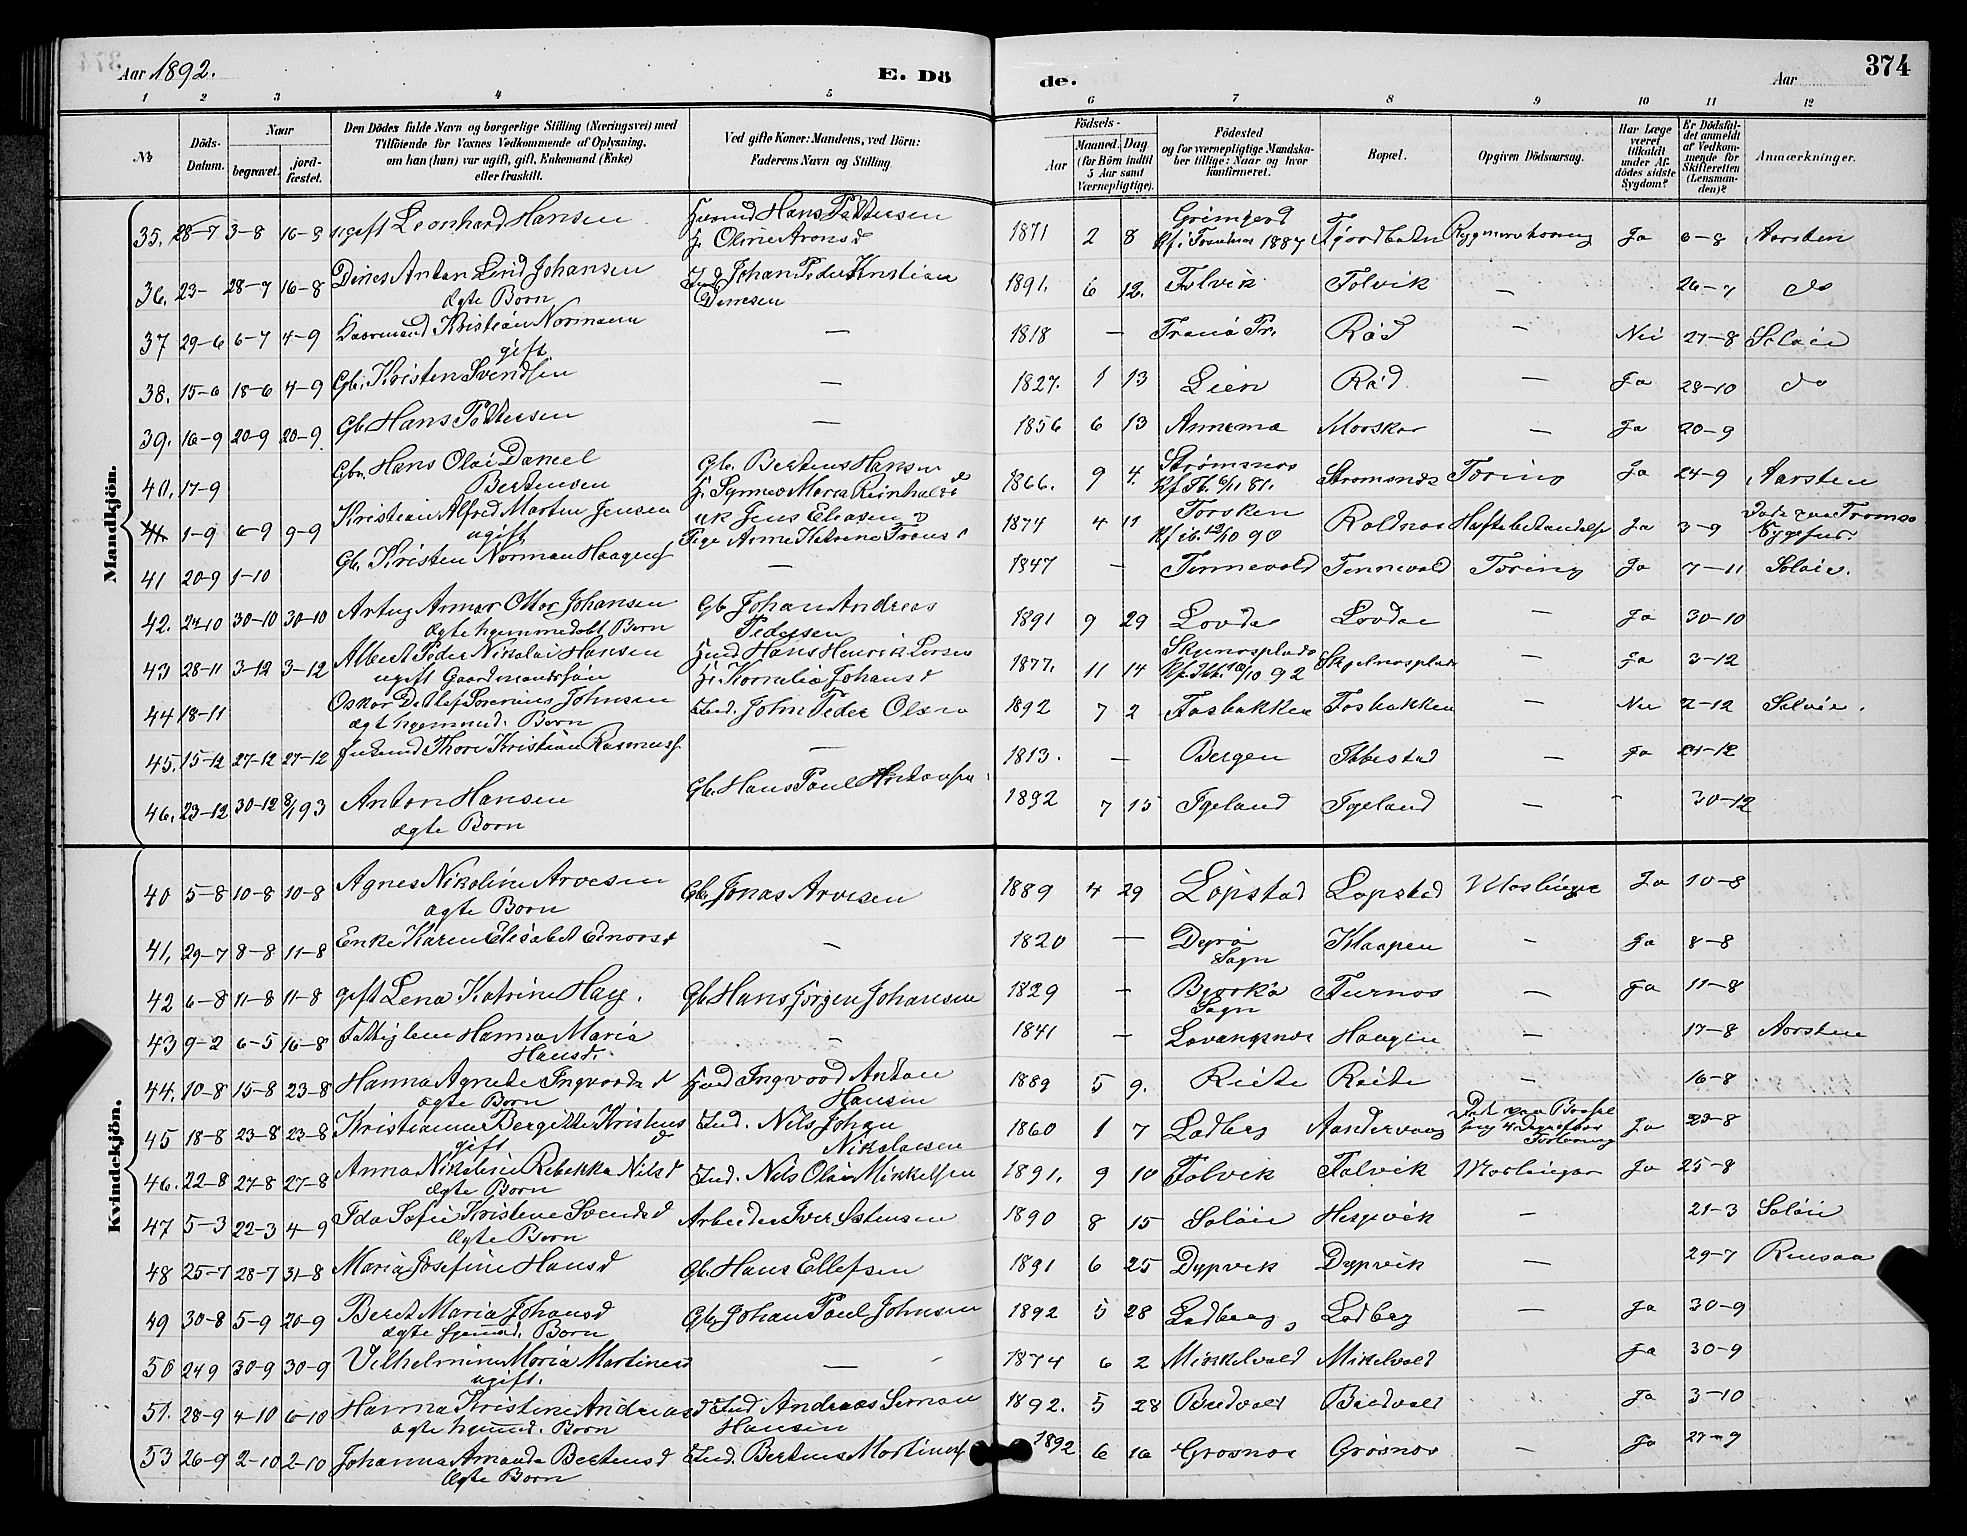 Aar 1892. E. Dö
de. Aar 374
1 2 3 4 5 6 7 8 9 10 11 12
№ Döds-Datum. Naar begravet. jord-fæstet. Den Dödes fulde Navn og borgerlige Stilling (Næringsvei) med Tilföiende for Voxnes Vedkommende af Oplysning, om han (hun) var ugift, gift, Enkemand (Enke) eller fraskilt. Ved gifte Koner: Mandens, ved Börn: Faderens Navn og Stilling. Födsels- Aar Maaned. Dag (for Börn indtil 5 Aar samt Værnepligtige). Födested og for værnepligtige Mandskaber tillige: Naar og hvor konfirmeret. Bopæl. Opgiven Dödsaarsag. Har Læge været tilkaldt under Afdödes sidste Sygdom? Er Dödsfaldet anmeldt af Vedkommende for Skifteretten (Lensmanden)? Anmærkninger.
Mandkjön.
35. 28-7 3-8 16-8 ugift Leonhard Hansen Hans Pettersen 1871 2 8 Fjordbotn Ja 6-8 Aarsten
H. Oline Aronsd
36. 23- 28-7 16-8 Johansen Johan Peder Kristian 1891. 6 12. Tolvik Tolvik — 26-7 do
ægte Barn
37 29-6 6-7 4-9 Kaarmand Kristian Normann — 1818 — Tranø Pr. Rød — Nei 27-8 Seløie
gift
38. 15-6 18-6 4-9 Gbr. Kristen Svendsen — 1827. 1 13 Lien Rød. — Ja 28-10 do
39. 16-9 20-9 20-9 Gb. Hans Pettersen — 1856 6 13 Annema — Ja 20-9
40. 17-9 Gbr. Hans Olai Daniel Gb. Bertens Hansen 1866. 9 4. Strømsnes Strømsnes Tæring Ja 24-9 Aarsten
Bertensen
41 1-9 6-9 9-9 Kristian Alfred Martin Jensen uk Jens Eliasen 1874 4 11 Torsken Ja 3-9 Tromsø
ugift Kf. ib. 12/10 90 Sygehus.
41 20-9 1-10 Gb. Kristen Norman Haagens — 1847 — Tennevold Tennevold Tæring Ja 7-11 Seløie.
42. 24-10 30-10 30-10 Ottar Johansen Gb. Johan Andreas 1891 9 29 Lovda — Ja 30-10
ægte hjemmedøbt Barn Pedersen
43 28-11 3-12 3-12 Albert Peder Nikolai Hansen Hans Henrik 1877. 11 14 — Ja 3-12
ugift Gaardmandssøn H. Kornelia Johansd 10/10 92
44 18-11 Oskar Olaf Johnsen Ind. John Peder Olsen 1892 7 2 Fosbakken Fosbakken — Nei 2-12 Seløie.
ægte hjemmed. Barn
45. 15-12 27-12 27-12 Thore Kristian Rasmuss. — 1813. — Bergen Ibbestad — Ja 21-12
46. 23-12 30-12 8/1 93 Anton Hansen Gb. Hans Paul 1892 7 15 Igeland Igeland — - 30-12
ægte Barn
Kvindekjön.
40 5-8 10-8 10-8 Agnes Nikoline Arvesen Gb. Jonas Arvesen 1889 4 29 Løpstad Løpstad Mæslinger Ja 10-8
ægte Barn
41, 29-7 8-8 11-8 Enke Karen Elisabet — 1820 — Dyrø Klaapen — Ja 8-8
Sogn
42 6-8 11-8 11-8 gift Lena Katrine Hag. Gb. Hans Jørgen Johansen 1829 — Bjarkø — Ja 11-8
Sogn
43 9-2 6-5 16-8 Fattiglem Hanna Maria — 1841 — Lavangsnes — 17-8 Aarsten
Hansd.
44. 10-8 15-8 23-8 Hanna Agnete Ingvoldsd Ingvold Anton 1889 5 9. Reite Reite — 16-8
ægte Barn Hansen
45 18-8 23-8 23-8 Kristianna Bergitte Kristens Ind. Nils Johan 1860 1 7 Ladberg Aandervaag Ja 23-8
gift d Nikolaisen
46. 22-8 27-8 27-8 Anna Nikoline Rebekka Nilsd Ind. Nils Olai Mikkelsen 1891. 9 10 Tolvik Tolvik Mæslinger Ja 25-8
ægte Barn
47 5-3 22-3 4-9 Ida Sofie Kristine Svendsd Arbeider Iver Østensen 1890 8 15 Seløie Hesjevik — 21-3 Seløie
ægte Barn
48 25-7 28-7 31-8 Maria Josefine Hansd Gb. Hans Ellefsen 1891 6 25 Dypvik Dypvik — 29-7 Rensaa
49 30-8 5-9 20-9 Beret Maria Johansd Gb. Johan Paul Johnsen 1892 5 28 Ladberg Ladberg — Ja 30-9
ægte hjemmed. Barn
50 24-9 30-9 30-9 Vilhelmine Maria Martinesd — 1874 6 2 Mikkelvold Mikelvold Ja 30-9
ugift.
51. 28-9 4-10 6-10 Hanna Kristine Andreasd Ind Andreas Simon 1892. 5 28 Breivold Breivold Ja 3-10
ægte hjemmed. Barn Hansen
53 26-9 2-10 2-10 Johanna Amanda Bertensd Ind. Bertens Martinus 1892 6 16 Grasnes Grøsnes — Ja 27-9
ægte Barn